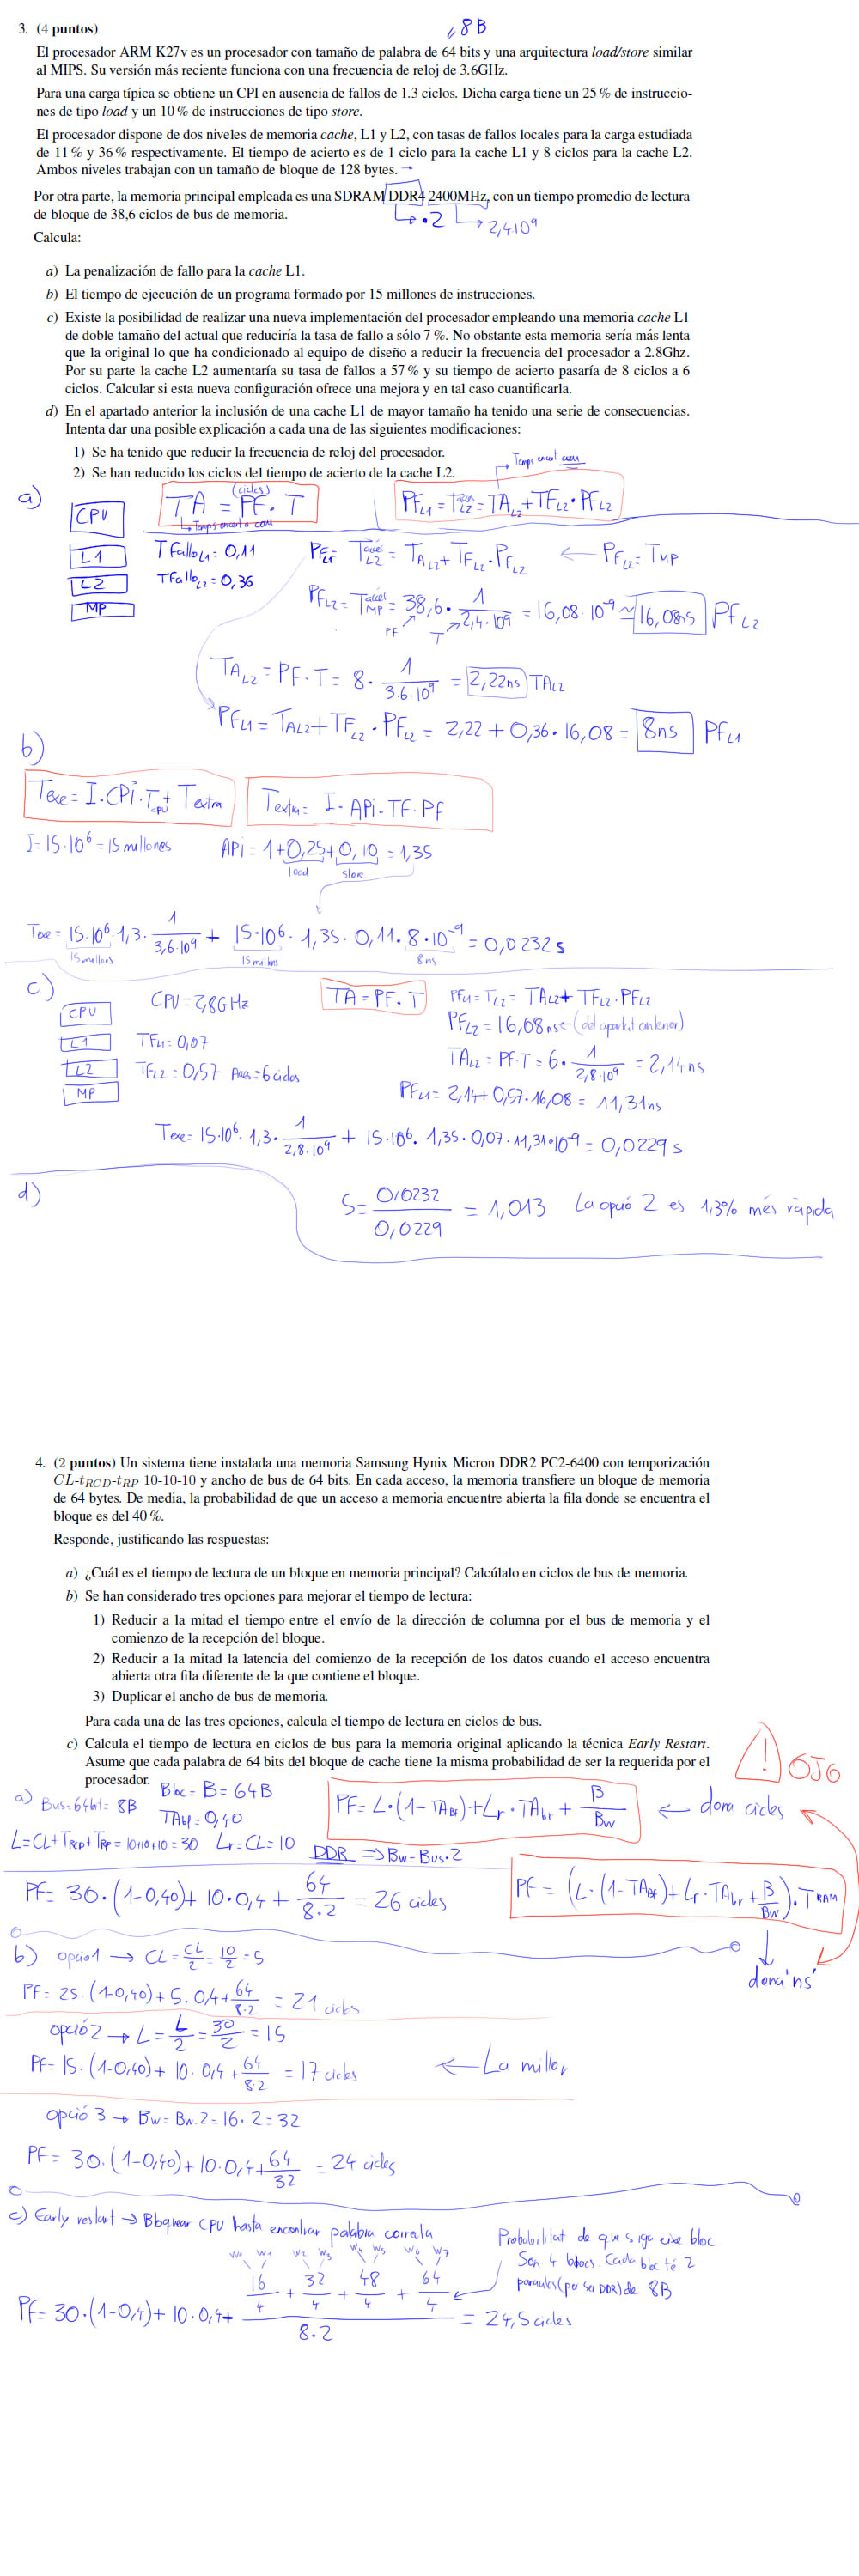 3. (4 puntos)
8B
El procesador ARM K27v es un procesador con tamaño de palabra de 64 bits y una arquitectura load/store similar
al MIPS. Su versión más reciente funciona con una frecuencia de reloj de 3.6GHz.
Para una carga típica se obtiene un CPI en ausencia de fallos de 1.3 ciclos. Dicha carga tiene un 25 % de instruccio-
nes de tipo load y un 10 % de instrucciones de tipo store.
El procesador dispone de dos niveles de memoria cache, L1 y L2, con tasas de fallos locales para la carga estudiada
de 11 % y 36 % respectivamente. El tiempo de acierto es de 1 ciclo para la cache L1 y 8 ciclos para la cache L2.
Ambos niveles trabajan con un tamaño de bloque de 128 bytes. →
Por otra parte, la memoria principal empleada es una SDRAM DDR4 2400MHz, con un tiempo promedio de lectura
de bloque de 38,6 ciclos de bus de memoria.
·2 2,4·10⁹
Calcula:
a) La penalización de fallo para la cache L1.
b) El tiempo de ejecución de un programa formado por 15 millones de instrucciones.
c) Existe la posibilidad de realizar una nueva implementación del procesador empleando una memoria cache L1
de doble tamaño del actual que reduciría la tasa de fallo a sólo 7 %. No obstante esta memoria sería más lenta
que la original lo que ha condicionado al equipo de diseño a reducir la frecuencia del procesador a 2.8Ghz.
Por su parte la cache L2 aumentaría su tasa de fallos a 57 % y su tiempo de acierto pasaría de 8 ciclos a 6
ciclos. Calcular si esta nueva configuración ofrece una mejora y en tal caso cuantificarla.
d) En el apartado anterior la inclusión de una cache L1 de mayor tamaño ha tenido una serie de consecuencias.
Intenta dar una posible explicación a cada una de las siguientes modificaciones:
1) Se ha tenido que reducir la frecuencia de reloj del procesador.
2) Se han reducido los ciclos del tiempo de acierto de la cache L2.
a)
CPU
L1
L2
MP
(cicles)
TA = PF · T
PF_L1 = T_L2 = TA_L2 + TF_L2 · PF_L2
TFallo_L1 = 0,11
TFallo_L2 = 0,36
PF_L1 = T_L2 = TA_L2 + TF_L2 · PF_L2 ← PF_L2 = T_MP
PF_L2 = T_MP = 38,6 · 1/2,4·10⁹ = 16,08·10⁻⁹ ≈ 16,08ns PF_L2
PF T
TA_L2 = PF · T = 8 · 1/3.6·10⁹ = 2,22ns TA_L2
PF_L1 = TA_L2 + TF_L2 · PF_L2 = 2,22 + 0,36 · 16,08 = 8ns PF_L1
b)
Texe = I · CPi · T_CPU + Textra
Textra = I · APi · TF · PF
I = 15·10⁶ = 15 millones
APi = 1 + 0,25 + 0,10 = 1,35
load store
Texe = 15·10⁶ · 1,3 · 1/3,6·10⁹ + 15·10⁶ · 1,35 · 0,11 · 8·10⁻⁹ = 0,0232 s
15 millons 15 millons 8ns
c)
CPU
L1
L2
MP
CPU = 2,8GHz
TF_L1 = 0,07
TF_L2 = 0,57
TA = PF · T
PF_L1 = T_L2 = TA_L2 + TF_L2 · PF_L2
PF_L2 = 16,08ns ← (del apartat anterior)
TA_L2 = PF · T = 6 · 1/2,8·10⁹ = 2,14ns
PF_L1 = 2,14 + 0,57 · 16,08 = 11,31ns
Texe = 15·10⁶ · 1,3 · 1/2,8·10⁹ + 15·10⁶ · 1,35 · 0,07 · 11,31·10⁻⁹ = 0,0229 s
d)
S = 0,0232/0,0229 = 1,013 La opció 2 es 1,3% més ràpida
4. (2 puntos) Un sistema tiene instalada una memoria Samsung Hynix Micron DDR2 PC2-6400 con temporización
CL-tRCD-tRP 10-10-10 y ancho de bus de 64 bits. En cada acceso, la memoria transfiere un bloque de memoria
de 64 bytes. De media, la probabilidad de que un acceso a memoria encuentre abierta la fila donde se encuentra el
bloque es del 40 %.
Responde, justificando las respuestas:
a) ¿Cuál es el tiempo de lectura de un bloque en memoria principal? Calcúlalo en ciclos de bus de memoria.
b) Se han considerado tres opciones para mejorar el tiempo de lectura:
1) Reducir a la mitad el tiempo entre el envío de la dirección de columna por el bus de memoria y el
comienzo de la recepción del bloque.
2) Reducir a la mitad la latencia del comienzo de la recepción de los datos cuando el acceso encuentra
abierta otra fila diferente de la que contiene el bloque.
3) Duplicar el ancho de bus de memoria.
Para cada una de las tres opciones, calcula el tiempo de lectura en ciclos de bus.
c) Calcula el tiempo de lectura en ciclos de bus para la memoria original aplicando la técnica Early Restart.
Asume que cada palabra de 64 bits del bloque de cache tiene la misma probabilidad de ser la requerida por el
procesador.
! OJO
a) Bus = 64bit = 8B
Bloc = B = 64B
TAbf = 0,40
PF = L · (1 - TAbf) + Lr · TAbr + B/Bw ← dona cicles
L = CL + TRCD + TRP = 10+10+10 = 30 Lr = CL = 10
DDR => Bw = Bus · 2
PF = 30 · (1-0,40) + 10 · 0,4 + 64/8·2 = 26 cicles
PF = (L · (1 - TAbf) + Lr · TAbr + B/Bw) · T RAM
dona 'ns'
b) opció 1 → CL = CL/2 = 10/2 = 5
PF = 25 · (1-0,40) + 5 · 0,4 + 64/8·2 = 21 cicles
opció 2 → L = L/2 = 30/2 = 15
PF = 15 · (1-0,40) + 10 · 0,4 + 64/8·2 = 17 cicles ← La millor
opció 3 → Bw = Bw · 2 = 16 · 2 = 32
PF = 30 · (1-0,40) + 10 · 0,4 + 64/32 = 24 cicles
c) Early restart → Bloquear CPU hasta encontrar palabra correcta
W0 W1 W2 W3 W4 W5 W6 W7
PF = 30 · (1-0,4) + 10 · 0,4 + (16/4 + 32/4 + 48/4 + 64/4)/8·2 = 24,5 cicles
Probabilitat de que siga eixe bloc.
Son 4 blocs. Cada bloc té 2
paraules (per ser DDR) de 8B